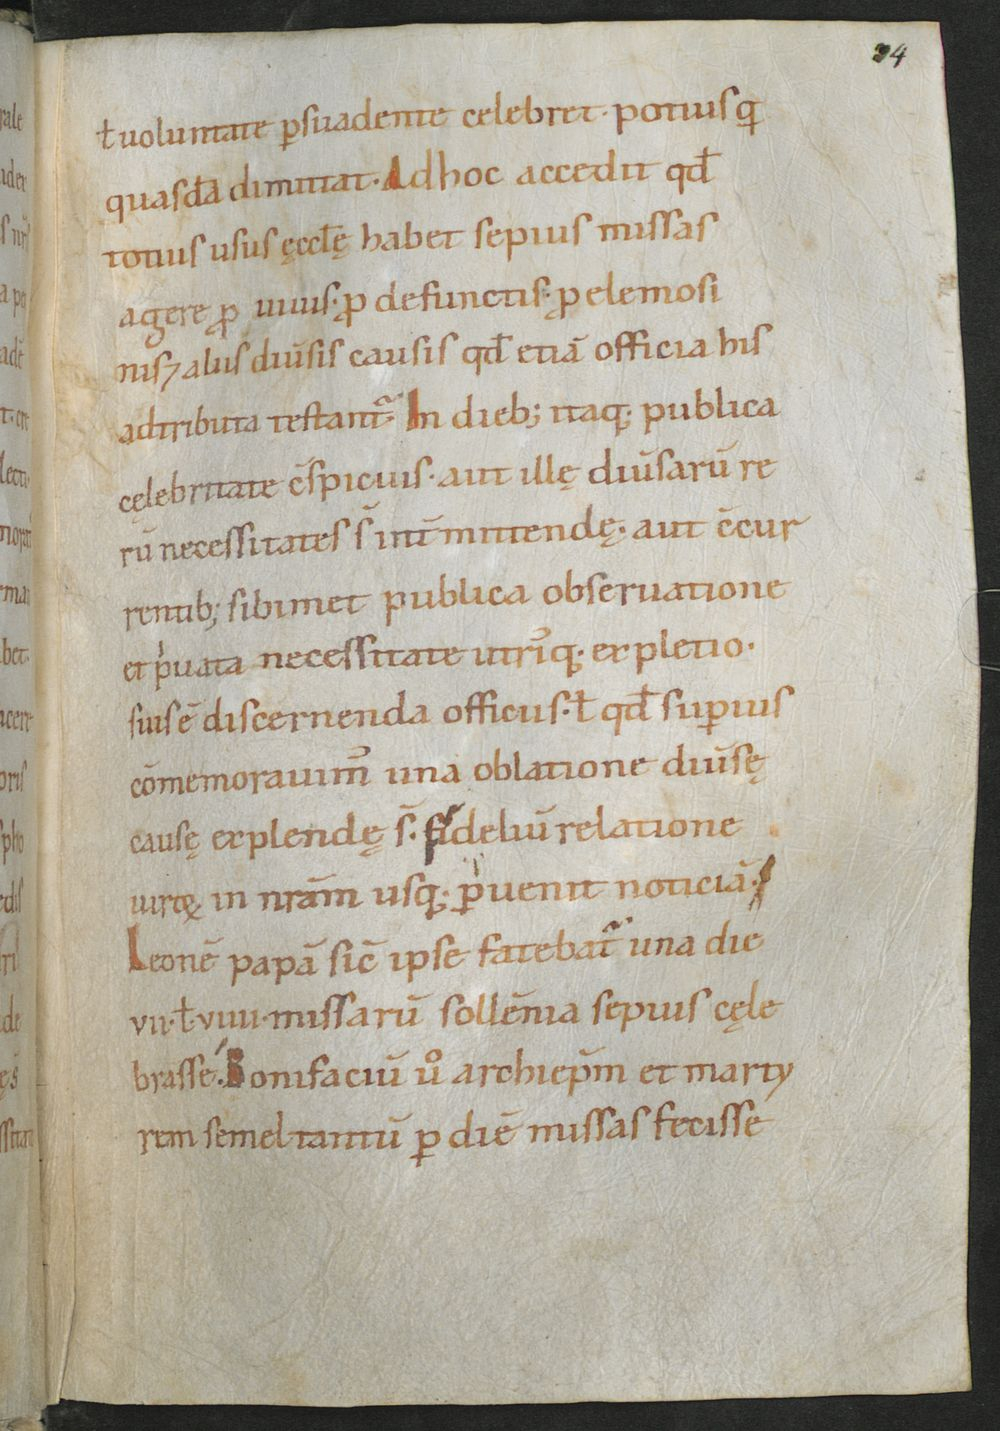 34
ł uoluntate ꝑsuadente celebret· potiusq̄
quasdā dimittat· Ad hoc accedit qđ
totius usus ęcclę habet sepius missas
agere ꝓ uiuis· ꝓ defunctis· ꝓ elemosi
nis ⁊ aliis diūsis causis qđ etiā officia his
adtributa testant᷑· In dieb; itaq; publica
cęlebritate c̄spicuis· aut illę diūsarū re
rū necessitates s̄ int̄mittendę· aut c̄cur
rentib; sibimet publica obseruatione
et p̍uata necessitate utriq; expletio·
suis ē discernenda officiis· ł qđ suꝑius
cōmemorauim᷒ una oblatione diūsę
causę explendę s̄· fideliū relatione
uiroꝝ in nrām usq; ꝑuenit noticiā·
Leonē papā sic̄ ipse fatebat᷑ una die
vii· ł viiii· missarū sollēnia sepius cęle
brasse· Bonifaciū uͦ archiep̄m et marty
rem semel tantū ꝑ diē missas fecisse
rale